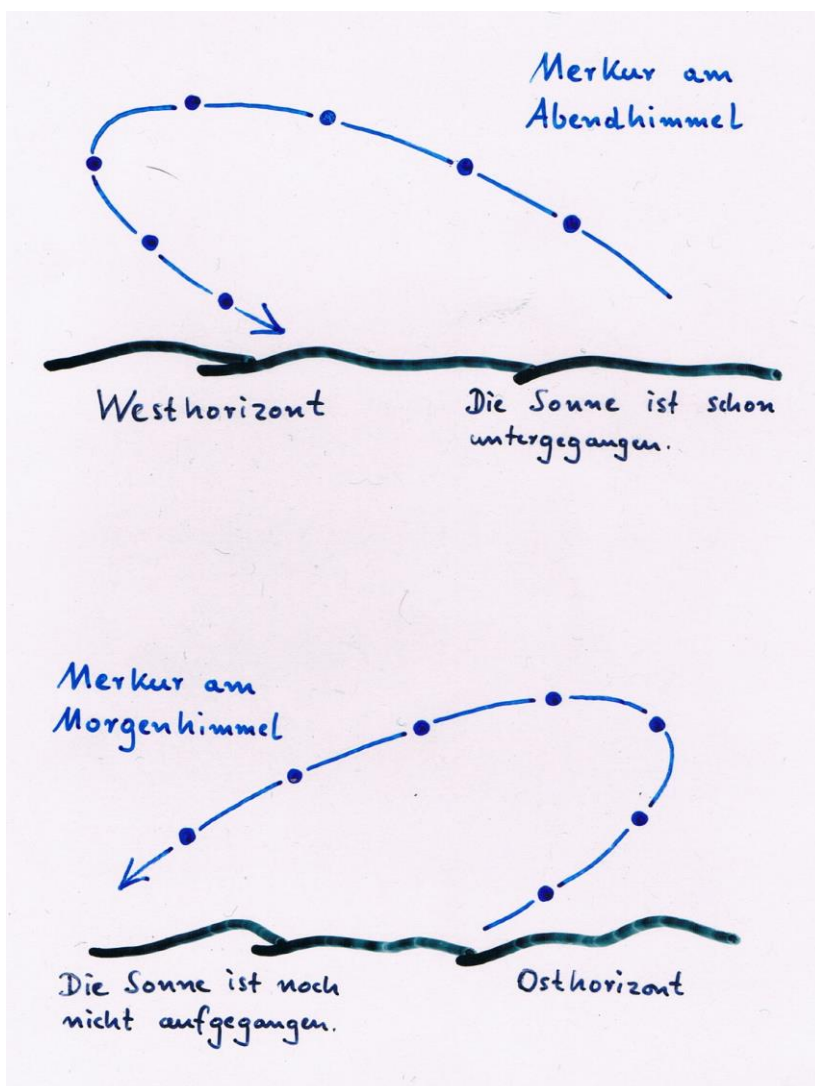 Merkur am
Abendhimmel
Westhorizont
Die Sonne ist schon
untergegangen.
Merkur am
Morgenhimmel
Die Sonne ist noch
nicht aufgegangen.
Osthorizont